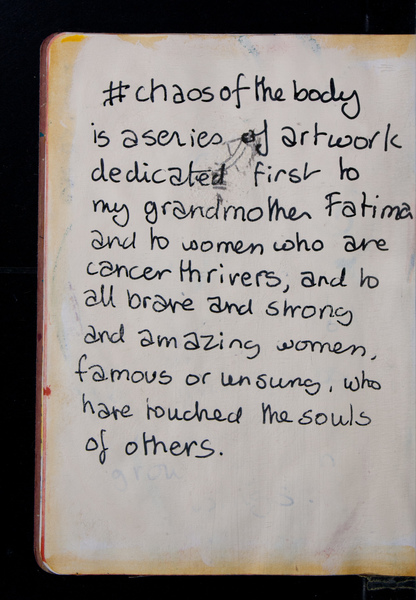 #chaos of the body
is a series of artwork
dedicated first to
my grandmother Fatima
and to women who are
cancer thrivers, and to
all brave and strong
and amazing women,
famous or unsung, who
have touched the souls
of others.